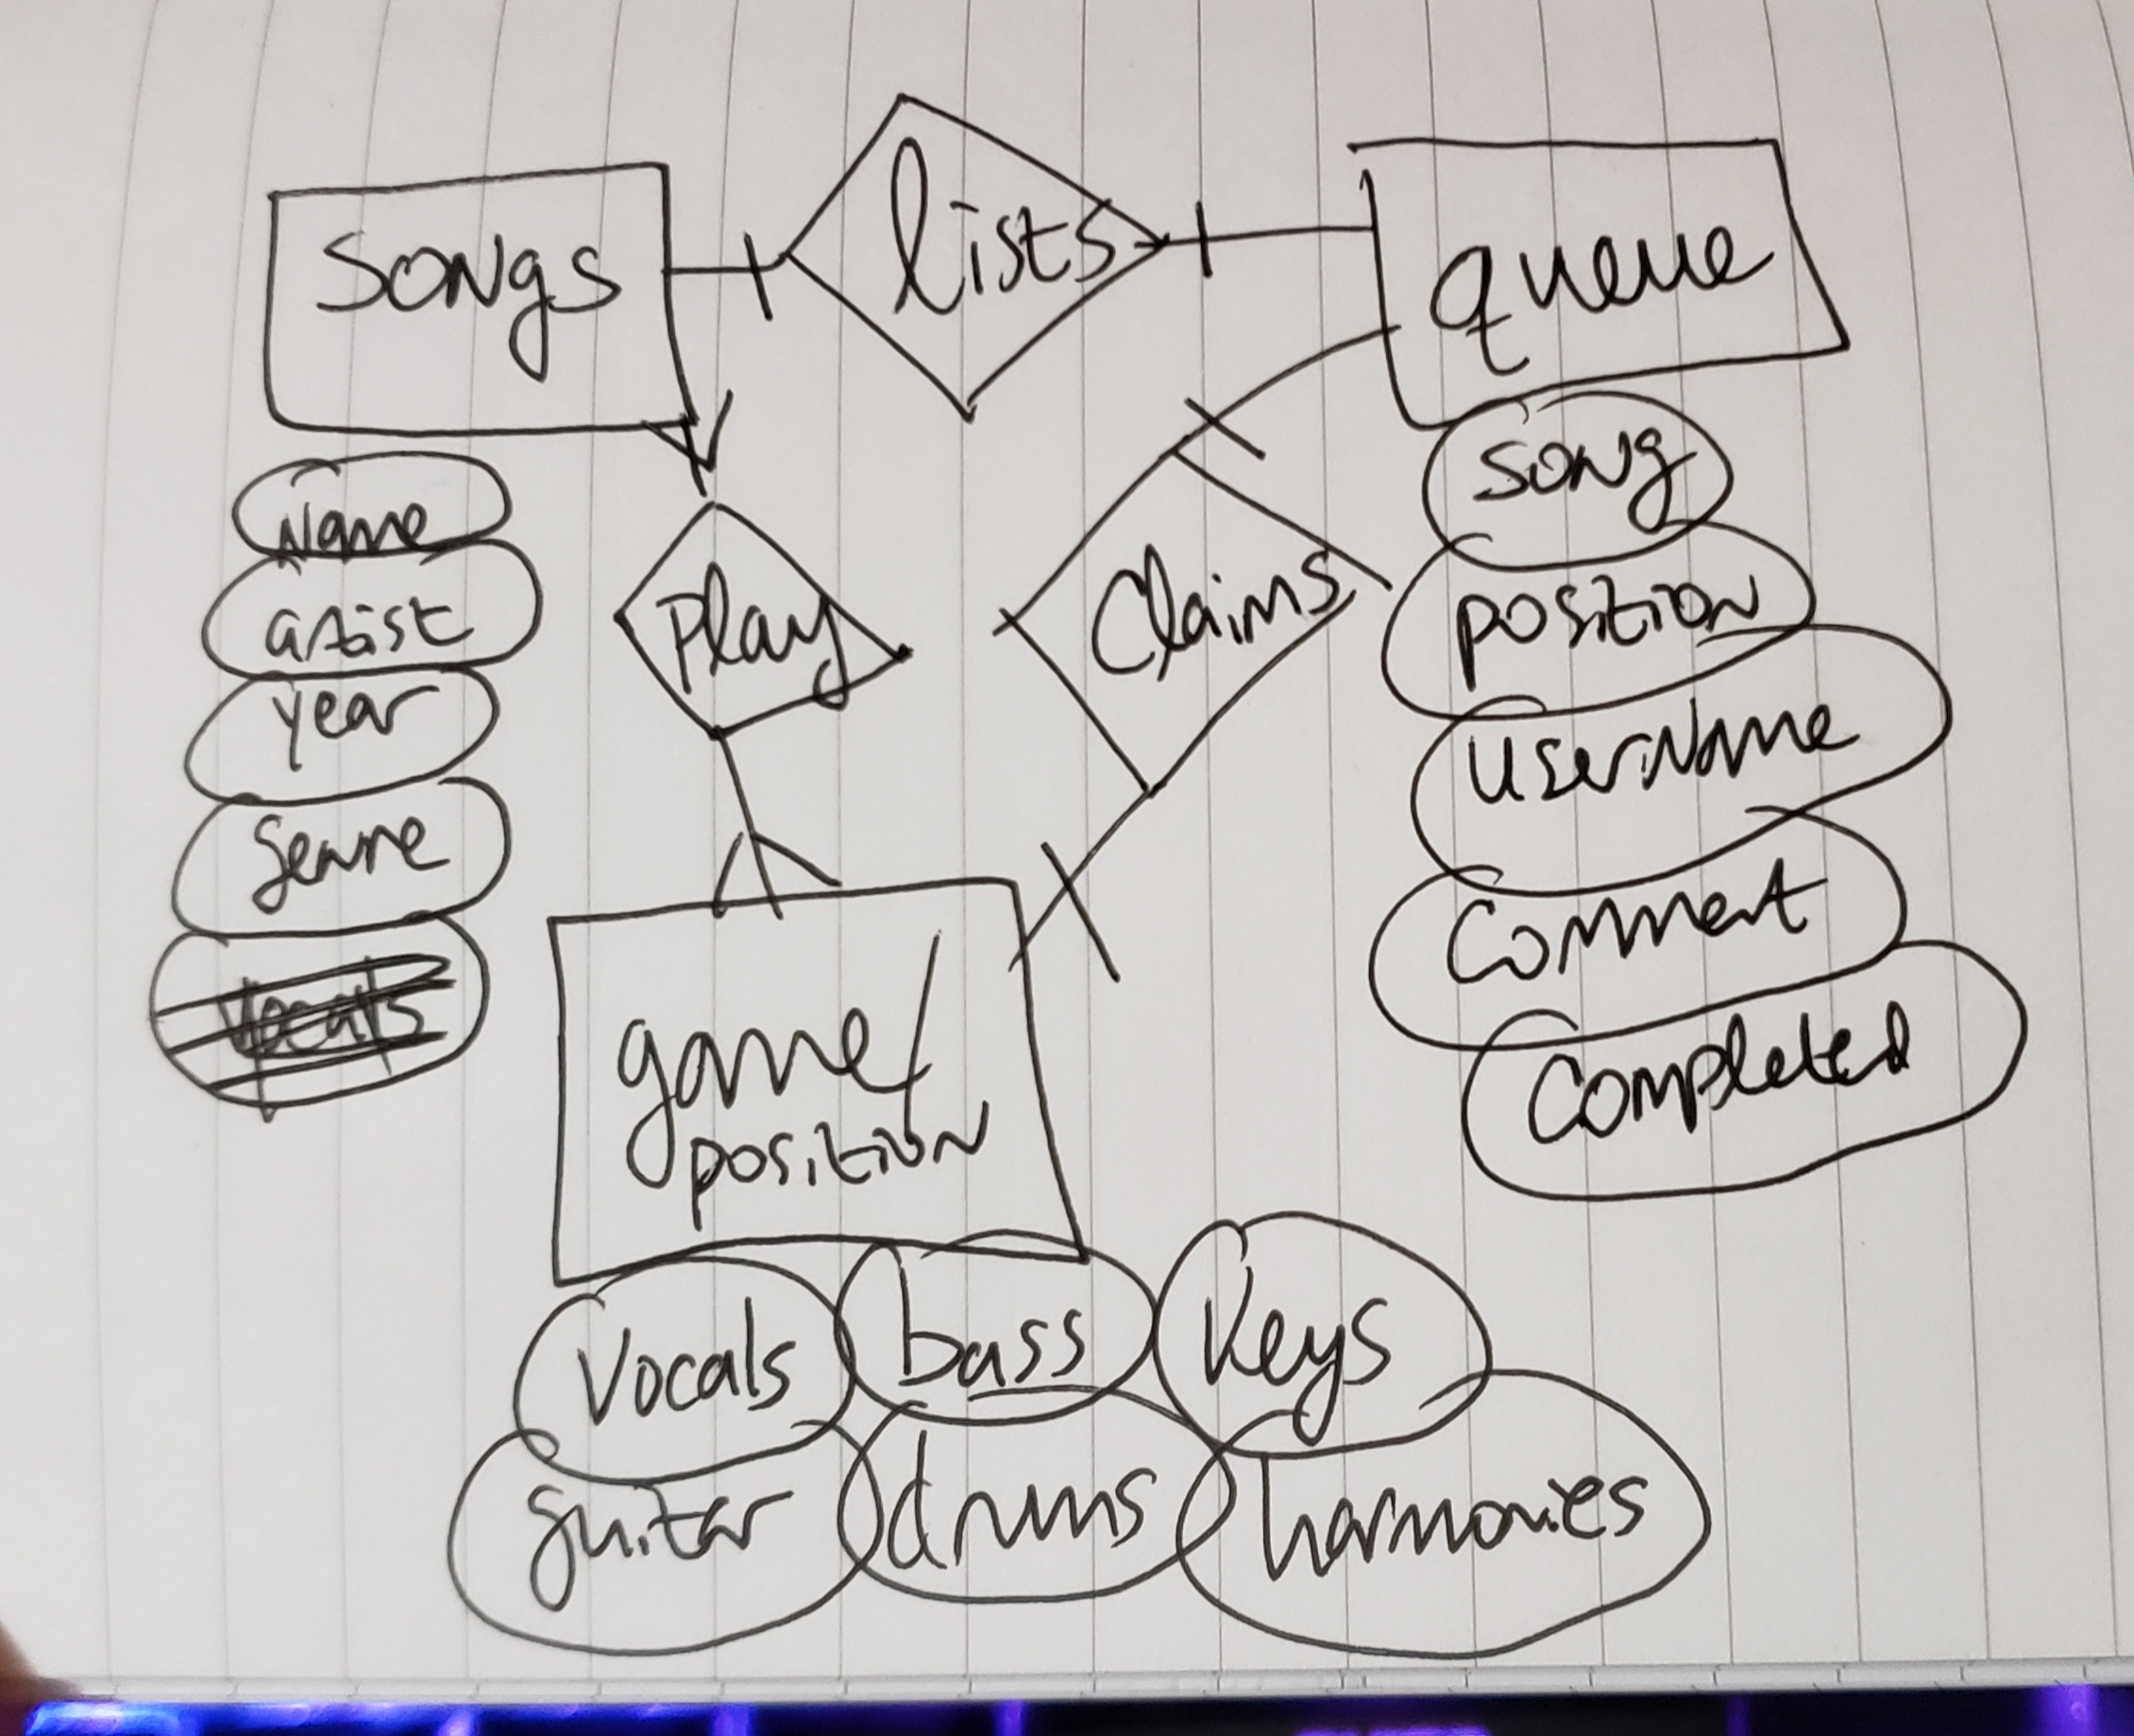 songs
lists
queue
Name
artist
year
genre
Vocals
Play
Claims
song
position
userName
Comment
Completed
game/
position
Vocals
bass
Keys
guitar
drums
harmonies